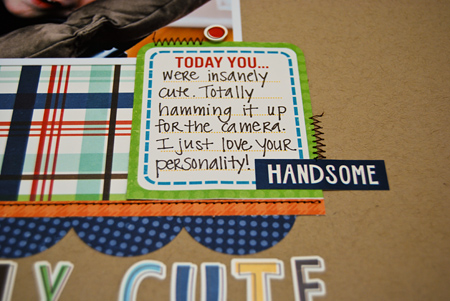 TODAY YOU...
were insanely
cute. Totally
hamming it up
for the camera.
I just love your
personality!
HANDSOME
Y CUTE